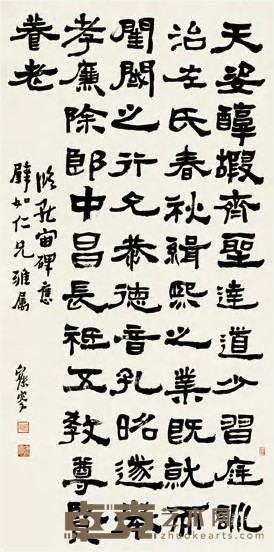 天姿醇嘏齊聖達道少習庭訓
治左氏春秋緝熙之業既就而
閨閾之行允恭德音孔昭遂舉
孝廉除郎中昌長祗五教尊賢
養老
臨孔宙碑應
如仁兄雅属
卓克艺术网
www.zhuokearts.com